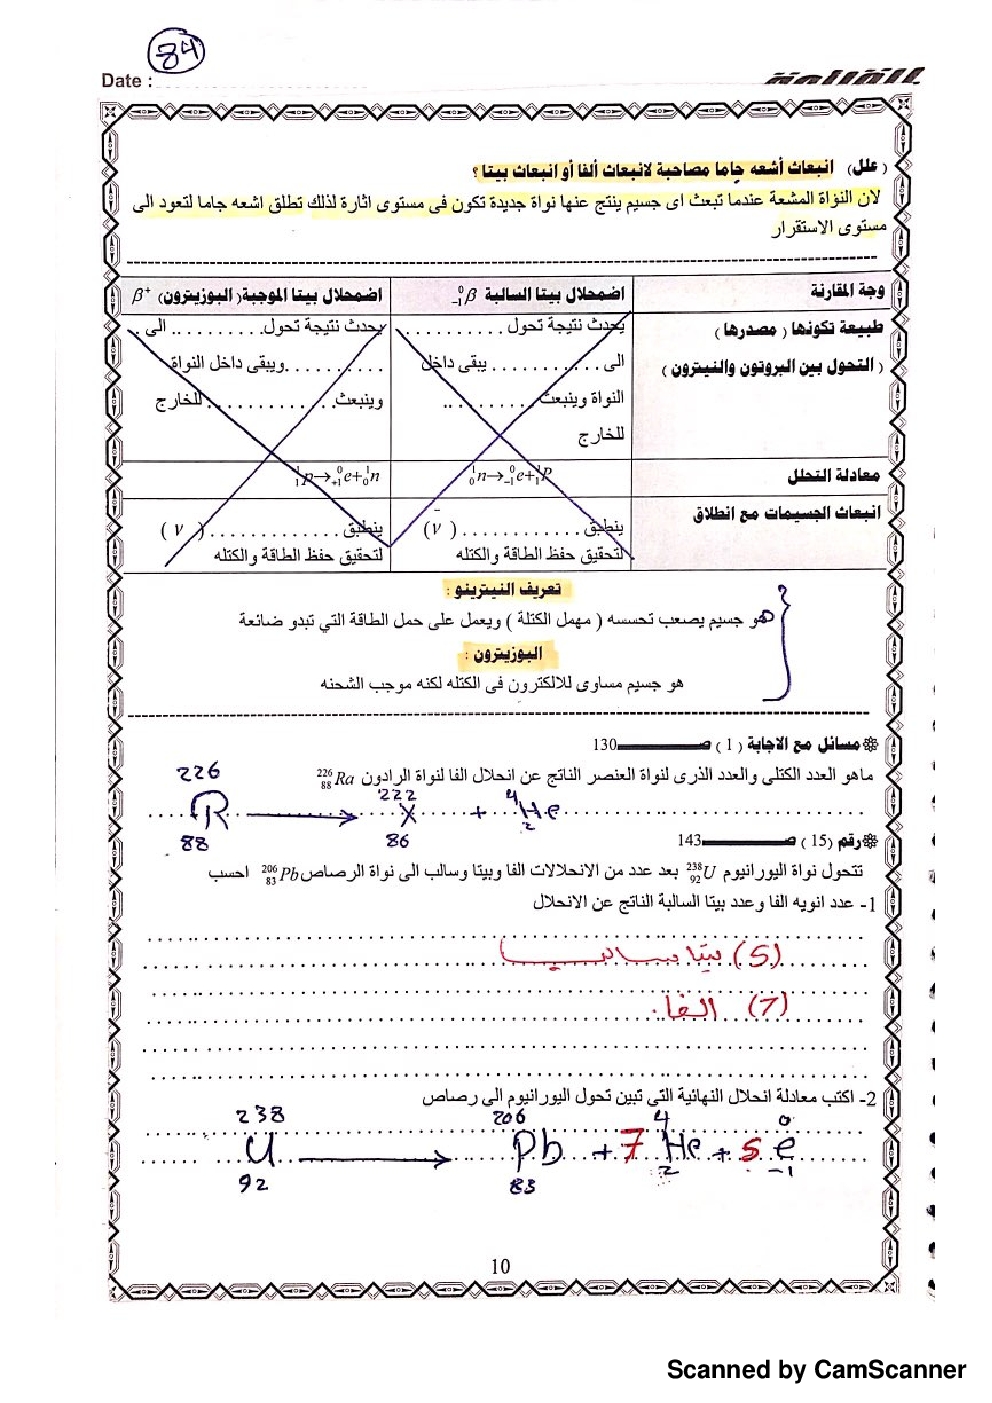 84
Date :
القرامة
( علل ) انبعاث أشعه جاما مصاحبة لانبعاث ألفا أو انبعاث بيتا ؟
لان النؤاة المشعة عندما تبعث اى جسيم ينتج عنها نواة جديدة تكون فى مستوى اثارة لذلك تطلق اشعه جاما لتعود الى
مستوى الاستقرار
وجة المقارنة
اضمحلال بيتا السالبة ⁰₋₁β
اضمحلال بيتا الموجبة( البوزيترون) β⁺
طبيعة تكونها ( مصدرها )
( التحول بين البروتون والنيترون )
يحدث نتيجة تحول . . . . . . . . . .
الى . . . . . . . . . . يبقى داخل
النواة وينبعث . . . . . . . . . .
للخارج
يحدث نتيجة تحول. . . . . . . . . . الى .
. . . . . . . . . .ويبقى داخل النواة
وينبعث. . . . . . . . . . . للخارج
معادلة التحلل
¹₀n→⁰₋₁e+¹₁P
¹₁p→⁰₊₁e+¹₀n
انبعاث الجسيمات مع انطلاق
ينطلق. . . . . . . . . . . ( ν̄ )
لتحقيق حفظ الطاقة والكتله
ينطبق. . . . . . . . . . ( ν )
لتحقيق حفظ الطاقة والكتله
تعريف النيترينو :
هو جسيم يصعب تحسسه ( مهمل الكتلة ) ويعمل على حمل الطاقة التي تبدو ضائعة
البوزيترون :
هو جسيم مساوى للالكترون فى الكتله لكنه موجب الشحنه
مسائل مع الاجابة ( 1 ) صـــــــــ 130
ماهو العدد الكتلى والعدد الذرى لنواة العنصر الناتج عن انحلال الفا لنواة الرادون ²²⁶₈₈Ra
²²⁶₈₈R → ²²²₈₆X + ⁴₂He
رقم (15 ) صـــــــــ 143
تتحول نواة اليورانيوم ²³⁸₉₂U بعد عدد من الانحلالات الفا وبيتا وسالب الى نواة الرصاص ²⁰⁶₈₃Pb احسب
1- عدد انويه الفا وعدد بيتا السالبة الناتج عن الانحلال
(5) بيتا سالب
(7) الفا
2- اكتب معادلة انحلال النهائية التي تبين تحول اليورانيوم الى رصاص
²³⁸₉₂U → ²⁰⁶₈₃Pb + 7 ⁴₂He + 5 ⁰₋₁e
10
Scanned by CamScanner